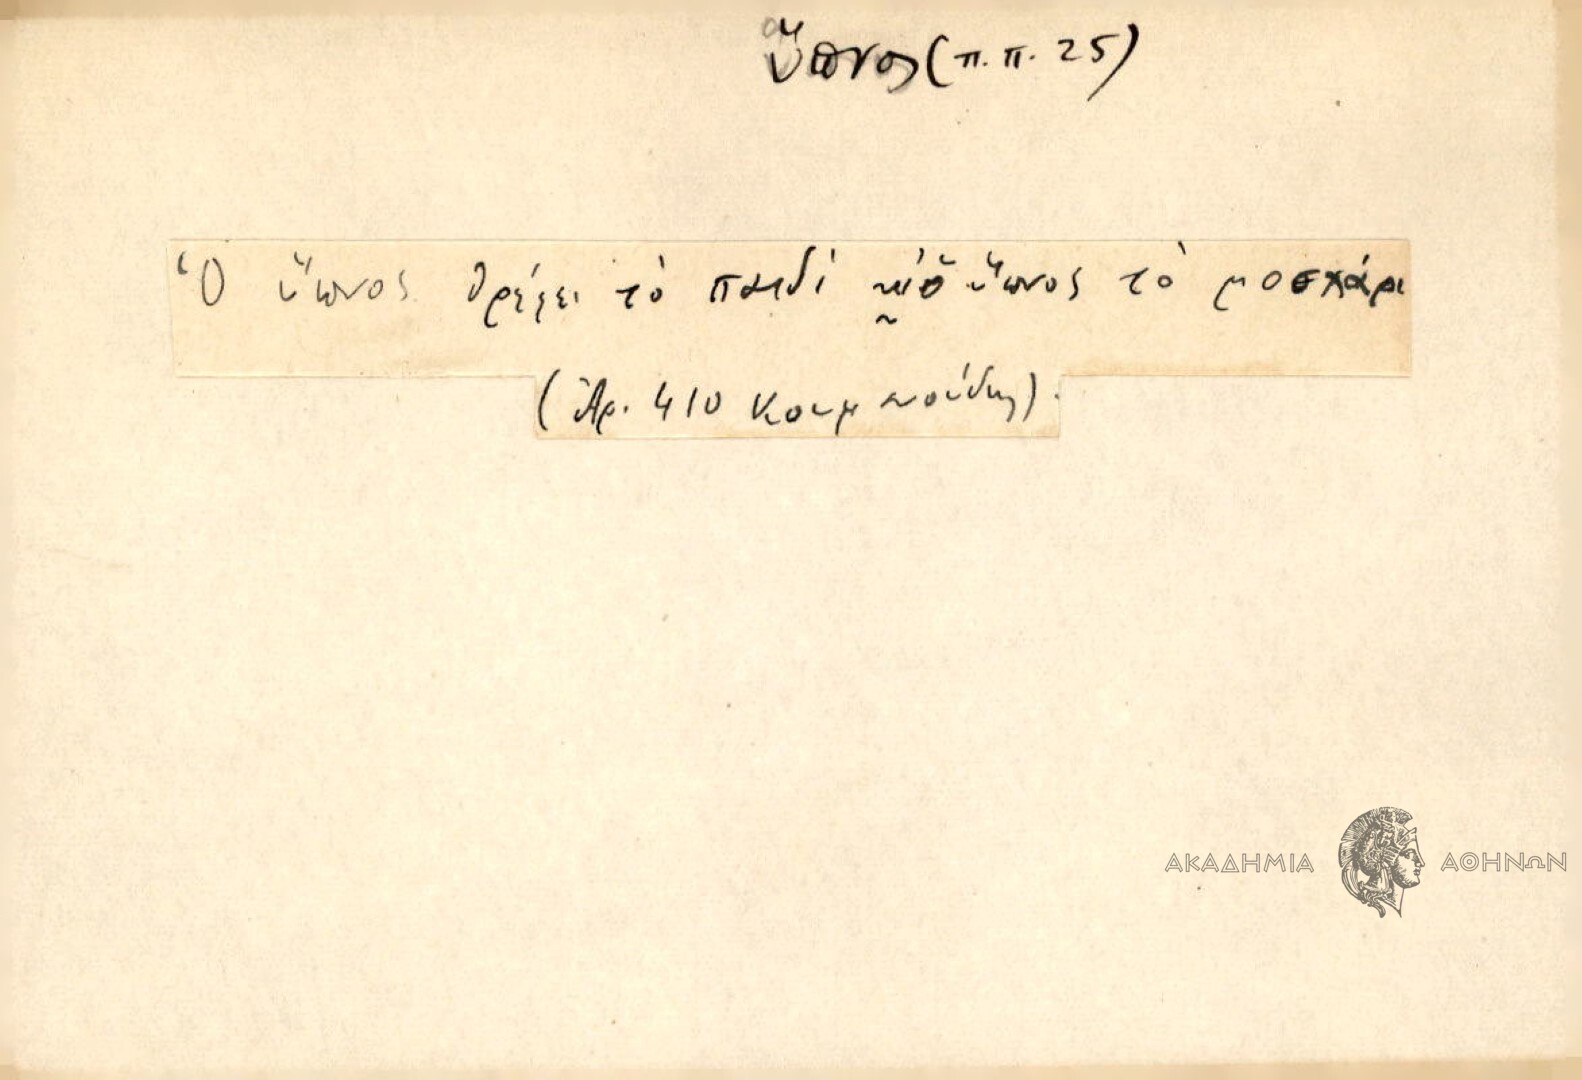 ὕπνος (π.π. 25)
Ὁ ὕπνος θρέφει τὸ παιδί κι ὁ ὕπνος τὸ μοσχάρι
(Ἀρ. 410 Κουμανούδης).
ΑΚΑΔΗΜΙΑ ΑΘΗΝΩΝ